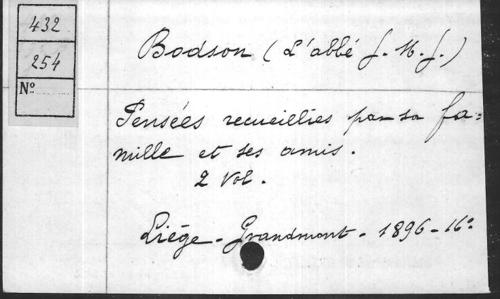 432
254
N°
Bodson (L'abbé J. M. J.)
Pensées recueillies par sa fa=
mille et ses amis.
2 vol.
Liége - Grandmont - 1896 - 16°